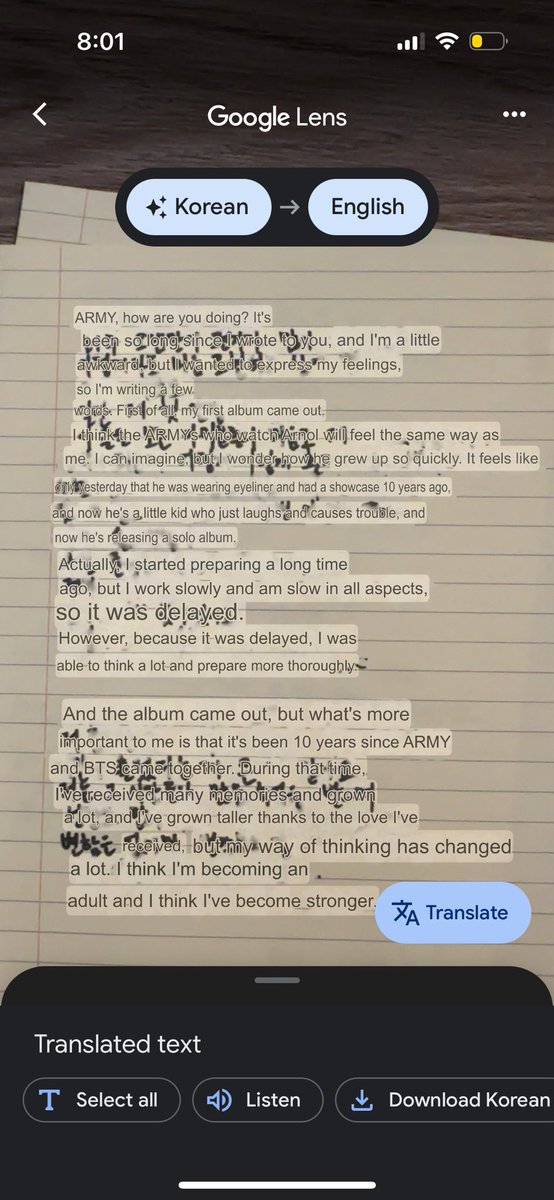 8:01
Google Lens
Korean → English
ARMY, how are you doing? It's
been so long since I wrote to you, and I'm a little
awkward, but I wanted to express my feelings,
so I'm writing a few
words. First of all, my first album came out.
I think the ARMYs who watch Arnol will feel the same way as
me. I can imagine, but I wonder how he grew up so quickly. It feels like
only yesterday that he was wearing eyeliner and had a showcase 10 years ago,
and now he's a little kid who just laughs and causes trouble, and
now he's releasing a solo album.
Actually, I started preparing a long time
ago, but I work slowly and am slow in all aspects,
so it was delayed.
However, because it was delayed, I was
able to think a lot and prepare more thoroughly.
And the album came out, but what's more
important to me is that it's been 10 years since ARMY
and BTS came together. During that time,
I've received many memories and grown
a lot, and I've grown taller thanks to the love I've
received, but my way of thinking has changed
a lot. I think I'm becoming an
adult and I think I've become stronger.
Translate
Translated text
Select all
Listen
Download Korean